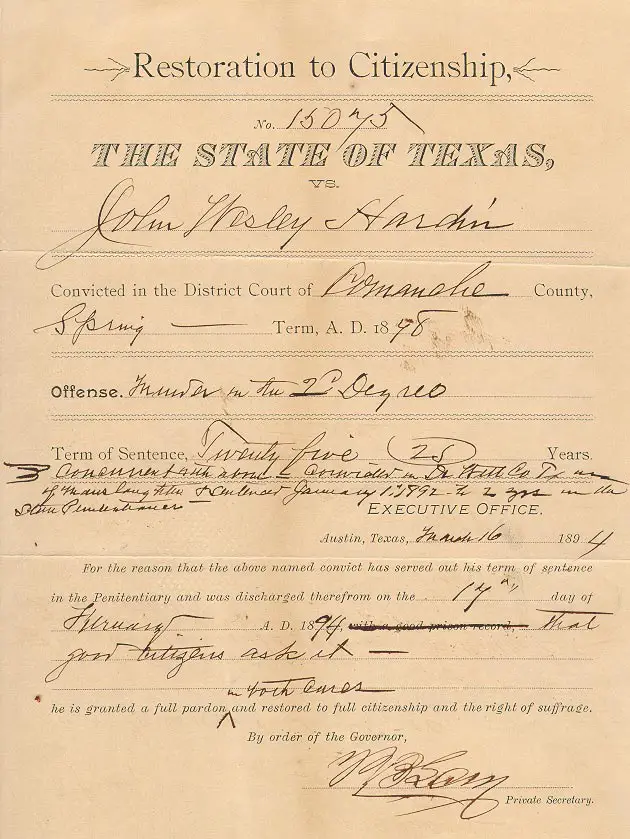 Restoration to Citizenship,
No. 15075
THE STATE OF TEXAS,
VS.
John Wesley Hardin
Convicted in the District Court of Comanche County,
Spring — Term, A. D. 1898
Offense. Murder in the 2d Degree
Term of Sentence, Twenty five (25) Years.
Concurrent with above — Convicted in De Witt Co Tx
of Manslaughter & Sentenced January 1st 1892 to 2 yrs in the
State Penitentiary
EXECUTIVE OFFICE.
Austin, Texas, March 16 1894
For the reason that the above named convict has served out his term of sentence
in the Penitentiary and was discharged therefrom on the 17" day of
February A. D. 1894, with a good prison record, that
good citizens ask it —
in both cases
he is granted a full pardon and restored to full citizenship and the right of suffrage.
By order of the Governor,
Private Secretary.